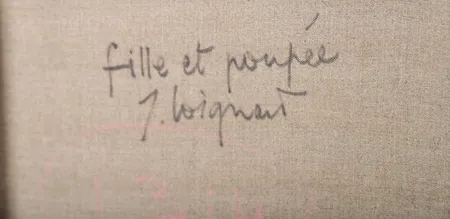 fille et poupée
J. Loignart